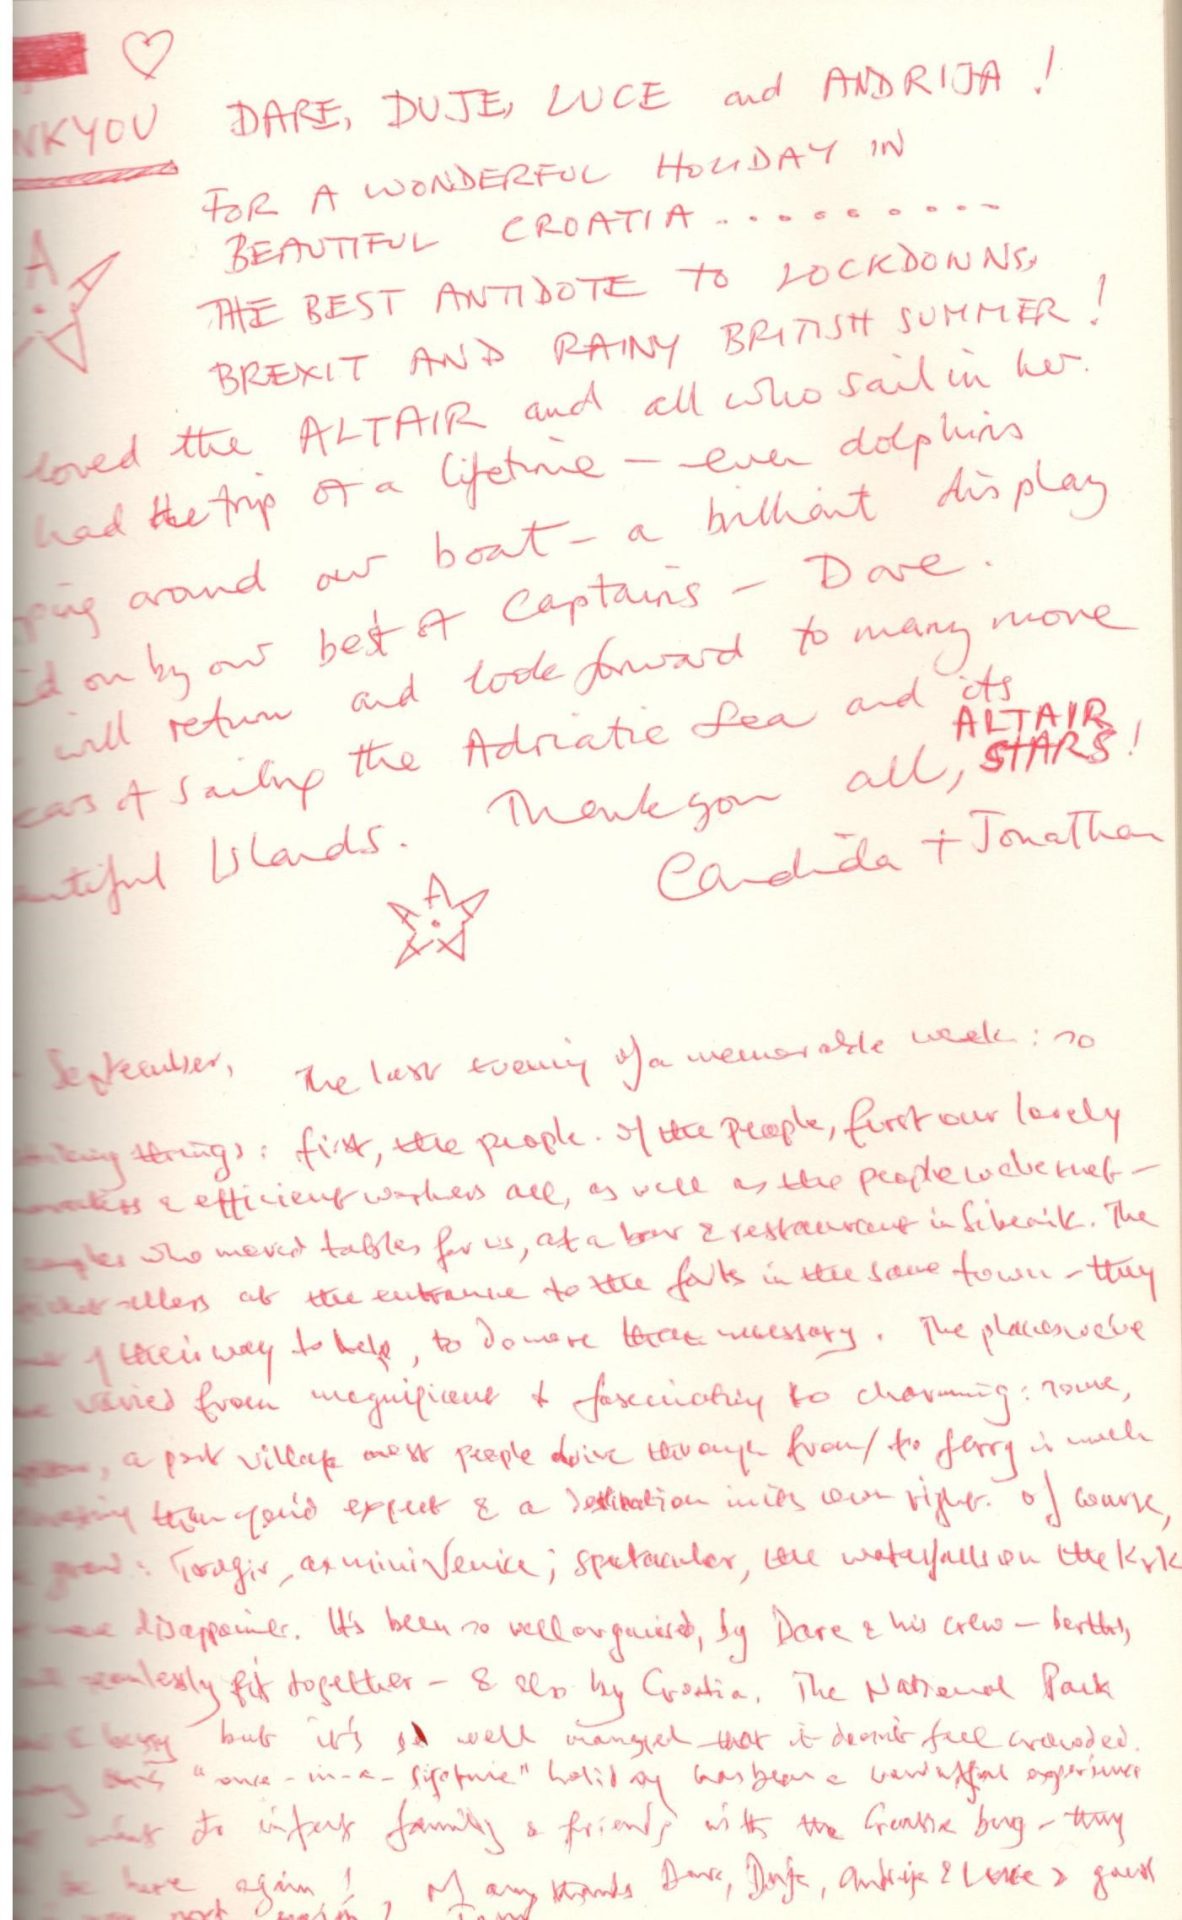 NKYOU DARE, DUJE, LUCE and ANDRIJA!
FOR A WONDERFUL HOLIDAY IN
BEAUTIFUL CROATIA..........
THE BEST ANTIDOTE TO LOCKDOWNS,
BREXIT AND RAINY BRITISH SUMMER!
loved the ALTAIR and all who sail in her.
had the trip of a lifetime – even dolphins
ping around our boat – a brilliant display
on by our best of Captains – Dare.
will return and look forward to many more
ears of sailing the Adriatic Sea and its
utiful Islands. Thank you all, ALTAIR STARS!
Candida + Jonathan
September, The last evening of a memorable week: so
things: first, the people. Of the people, first our lovely
& efficient workers all, as well as the people we've met –
who moved tables for us, at a bar & restaurant in Sibenik. The
sellers at the entrance to the falls in the same town – they
of their way to help, to do more than necessary. The places we've
varied from magnificent & fascinating to charming: some,
a port village most people drive through from/to ferry is much
than you'd expect & a destination in its own right. Of course,
Trogir, a mini Venice; spectacular, the waterfalls on the Krk
disappoint. It's been so well organised, by Dare & his crew – berths,
seamlessly fit together – & also by Croatia. The National Park
busy but it's so well managed that it doesn't feel crowded.
"once-in-a-lifetime" holiday has been a wonderful experience
want to infect family & friends with the Croatia bug – they
be here again! Many thanks Dare, Duje, Andrija & Luce &
next